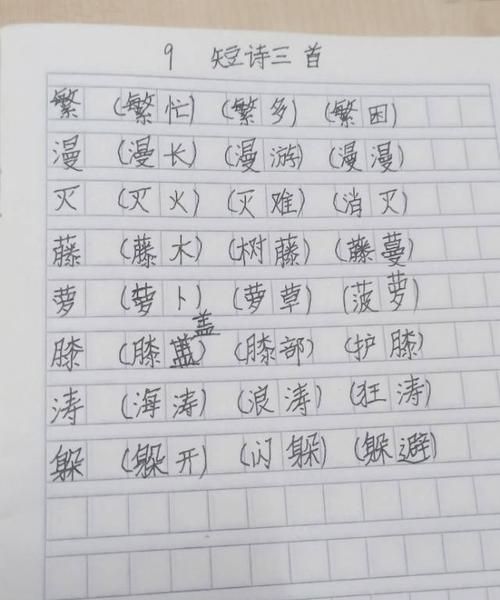 9 短诗三首
繁 (繁忙) (繁多) (繁困)
漫 (漫长) (漫游) (漫漫)
灭 (灭火) (灭难) (消灭)
藤 (藤木) (树藤) (藤蔓)
萝 (萝卜) (萝草) (菠萝)
膝 (膝盖) (膝部) (护膝)
涛 (海涛) (浪涛) (狂涛)
躲 (躲开) (闪躲) (躲避)